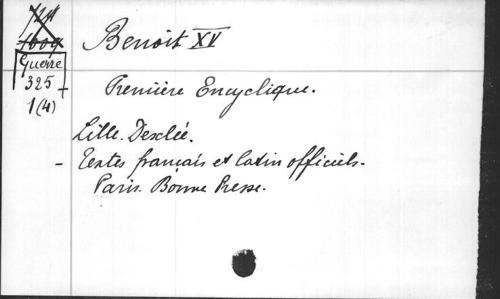 Benoit XV
Guerre
325
1(4)
Première Encyclique.
Lille. Desclée.
- Textes français et latin officiels.
Paris. Bonne Presse.